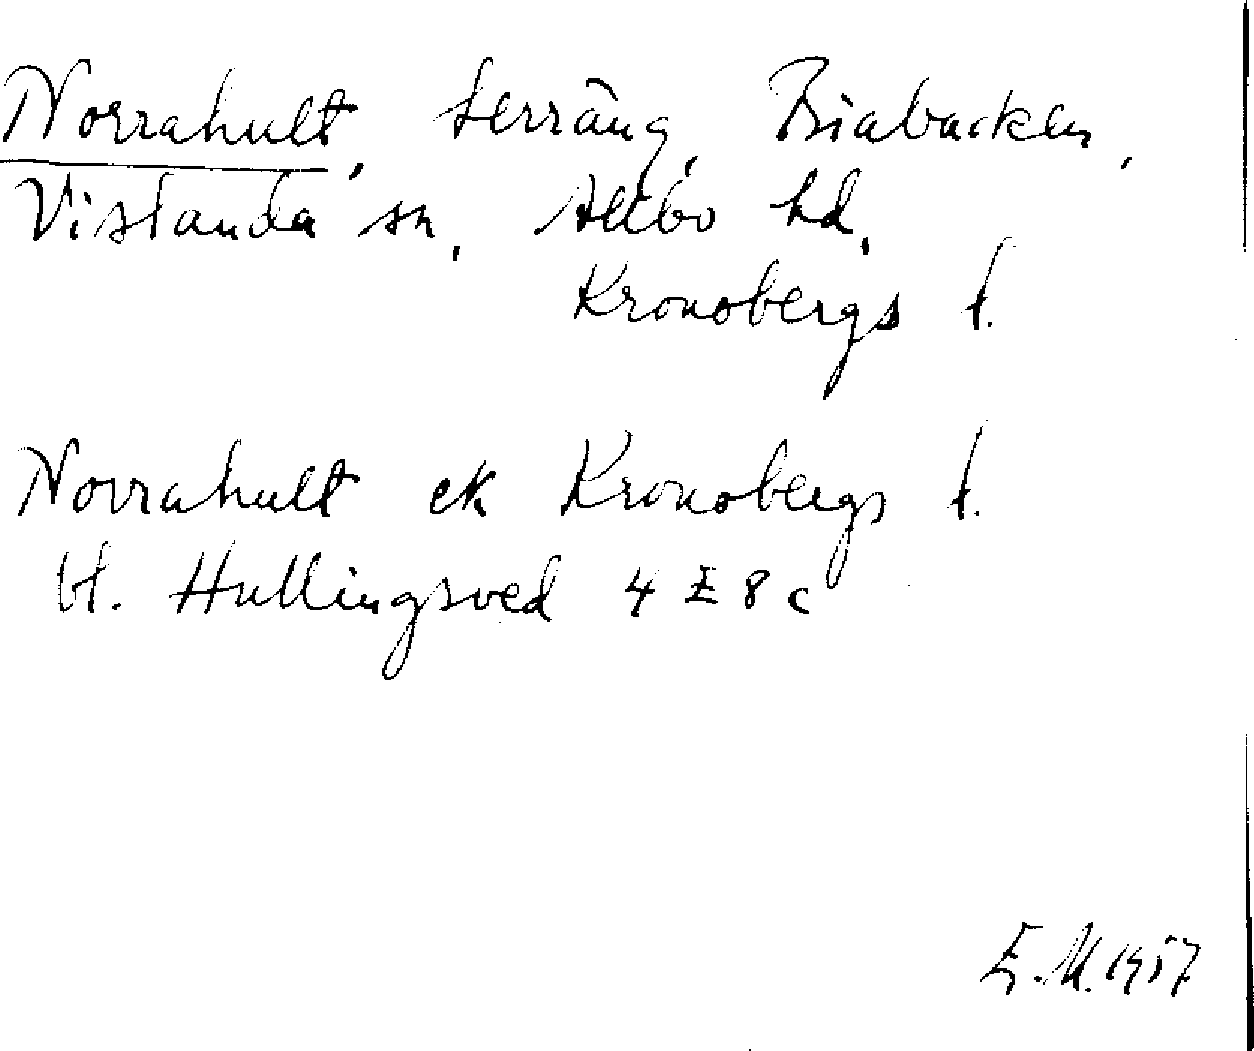 Norrahult, terräng, Biabacken,
Vislanda sn, Allbo hd,
Kronobergs l.
Norrahult ek Kronobergs l.
bl. Hullingsved 4 E 8 c
E.M. 1957